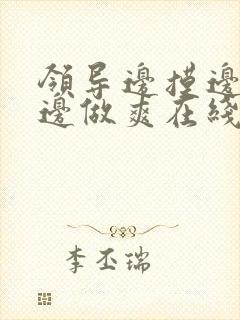 领导邊摸邊
邊做爽在綫
李丕瑞